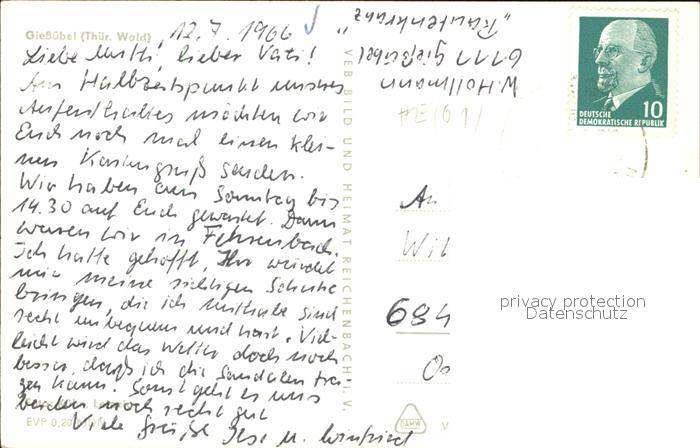 Gießübel (Thür. Wald)
12.7.1966
Liebe Mutti, lieber Vati!
Am Halbzeitpunkt unseres
Aufenthaltes möchten wir
Euch noch mal einen klei-
nen Kartengruß senden.
Wir haben am Sonntag bis
14.30 auf Euch gewartet. Dann
waren wir in Fehrenbach.
Ich hatte gehofft, Ihr würdet
mir meine richtigen Schuhe
bringen, die ich mithabe sind
recht unbequem und hart. Viel-
leicht wird das Wetter doch noch
besser, daß ich die Sandalen tra-
gen kann. Sonst geht es uns
beiden noch recht gut
Viele Grüße Ilse u. Winfried
EVP 0,20
VEB BILD UND HEIMAT REICHENBACH I. V.
W. Hollmann
6111 Gießübel
"Rautenkranz"
10
DEUTSCHE
DEMOKRATISCHE REPUBLIK
An
Wil
684
privacy protection
Datenschutz
V